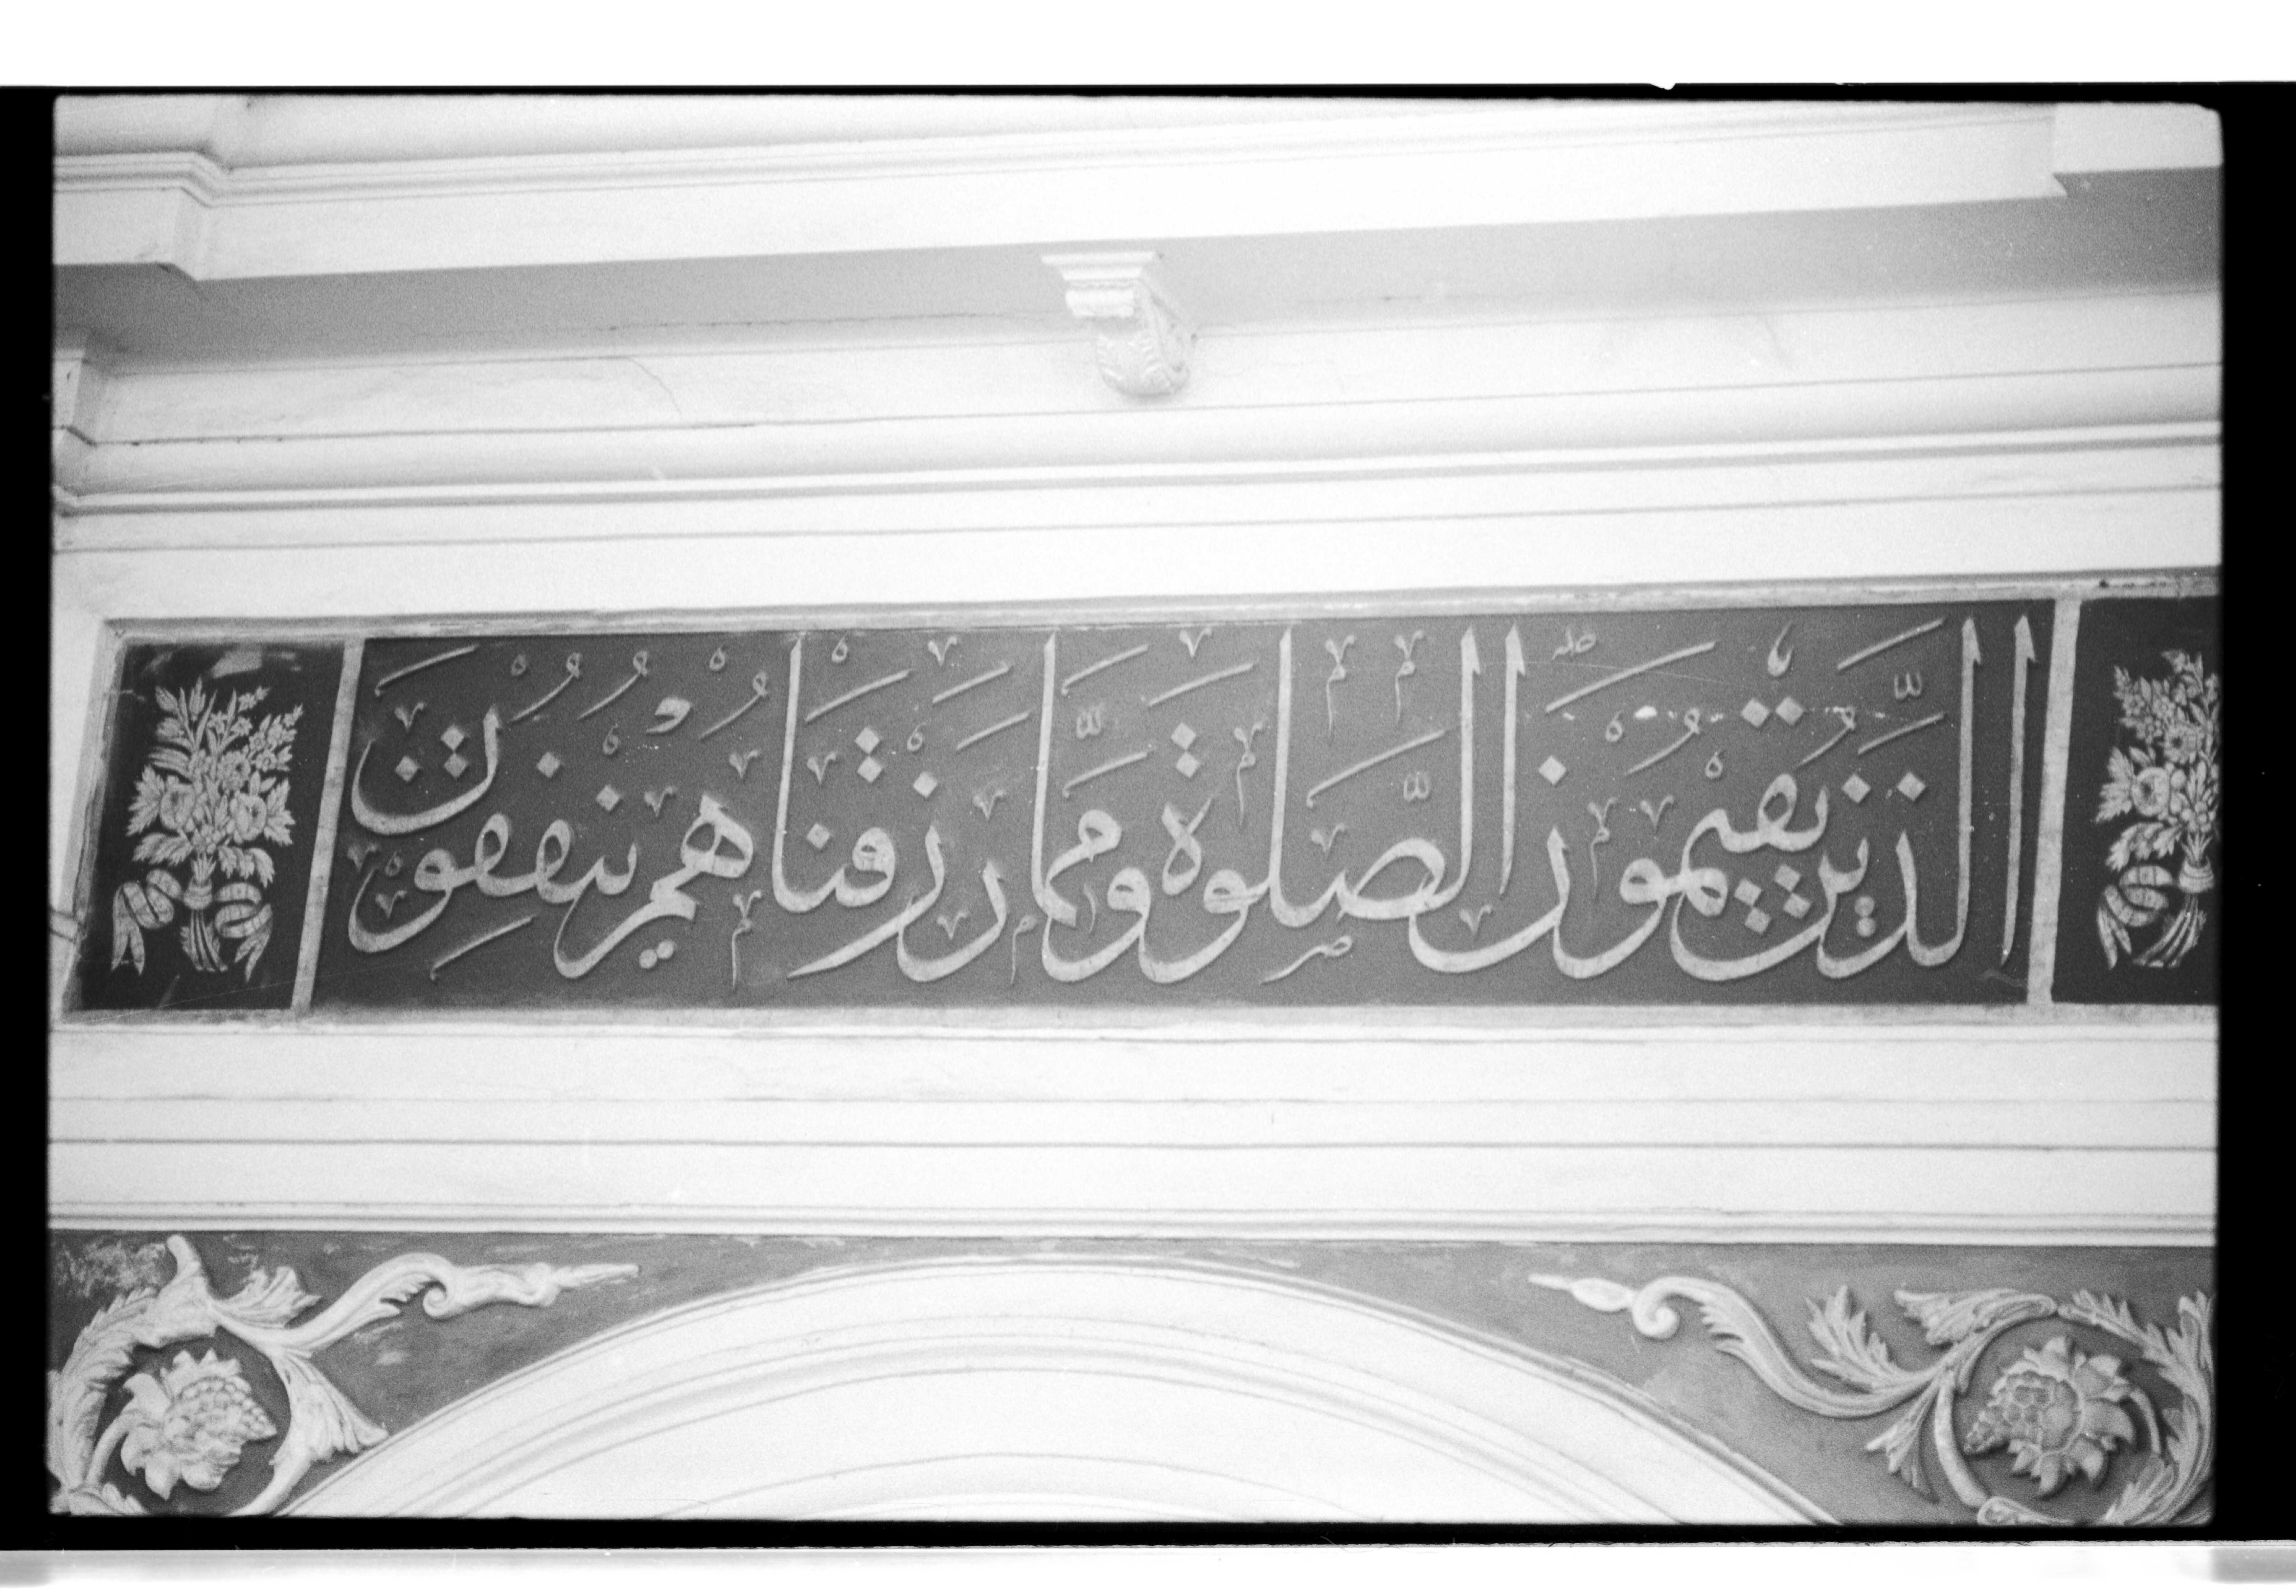 الَّذِينَ يُقِيمُونَ الصَّلٰوةَ وَمِمَّا رَزَقْنَاهُمْ يُنْفِقُونَ